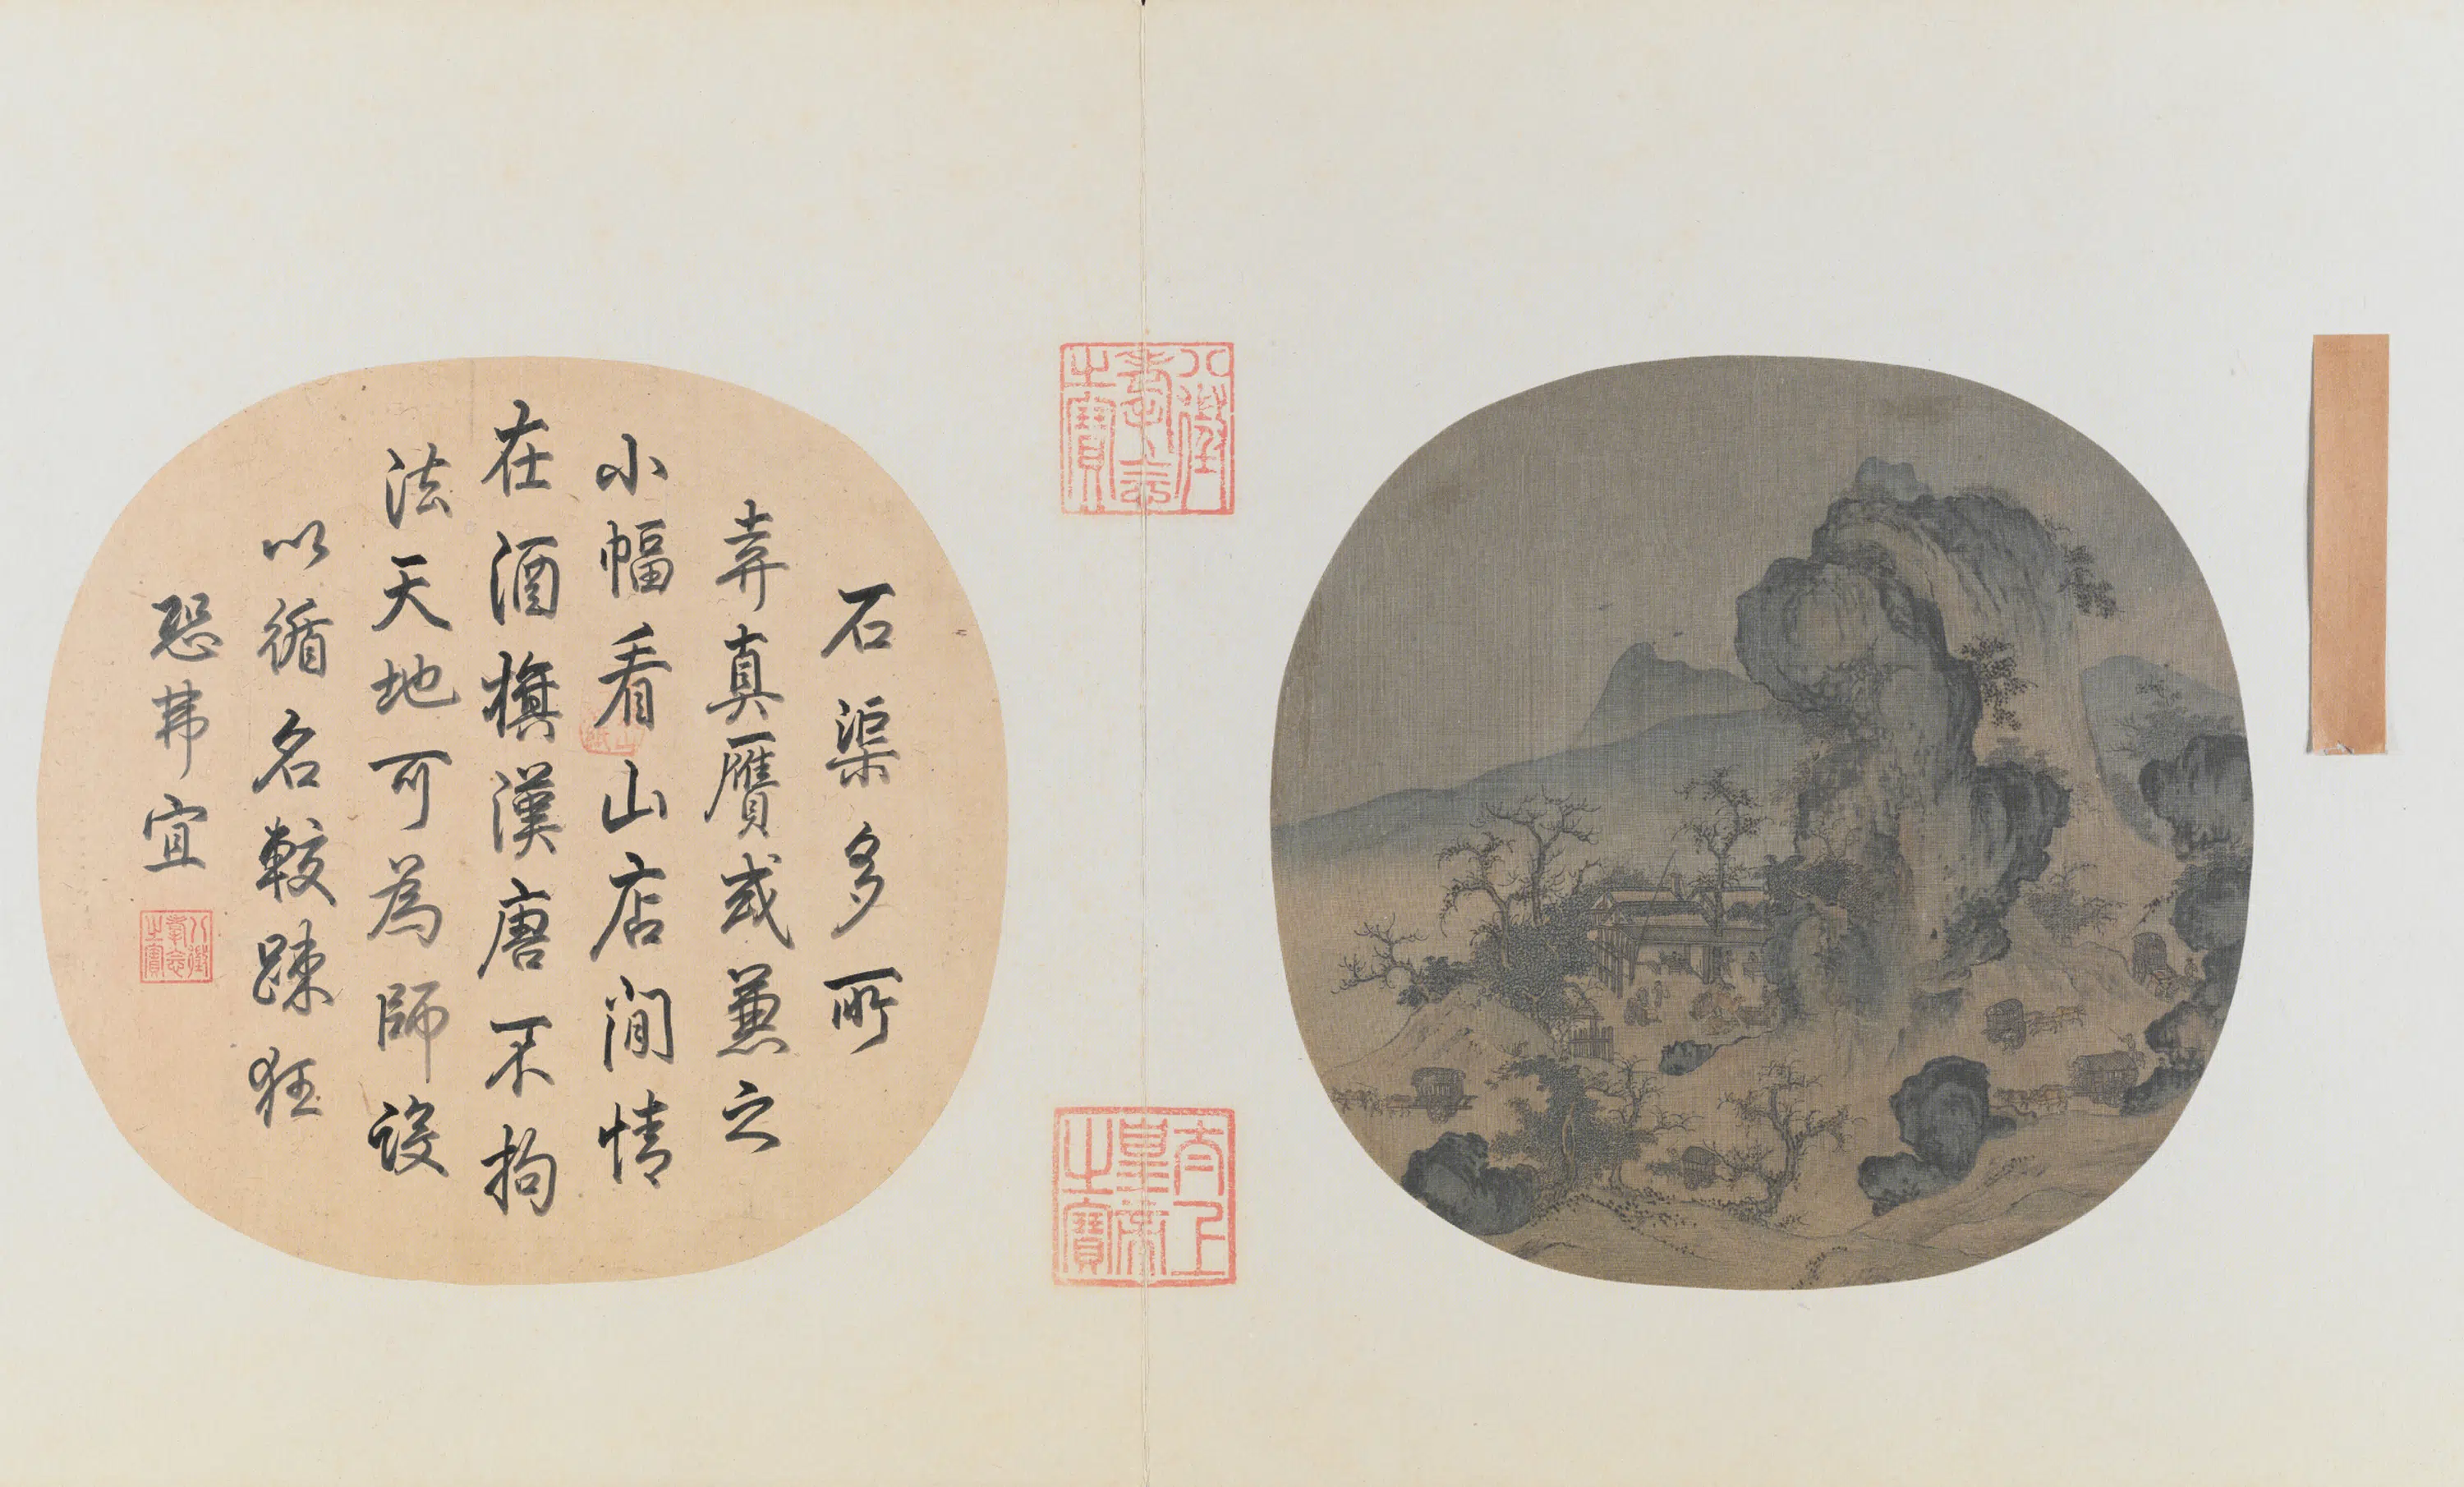 石渠多所
弆真贋或兼之
小幅看山店閒情
在酒旗漢唐不拘
法天地可為師設
以循名較疎狂
恐弗宜
八徵耄念之寶
八徵耄念之寶
太上皇帝之寶